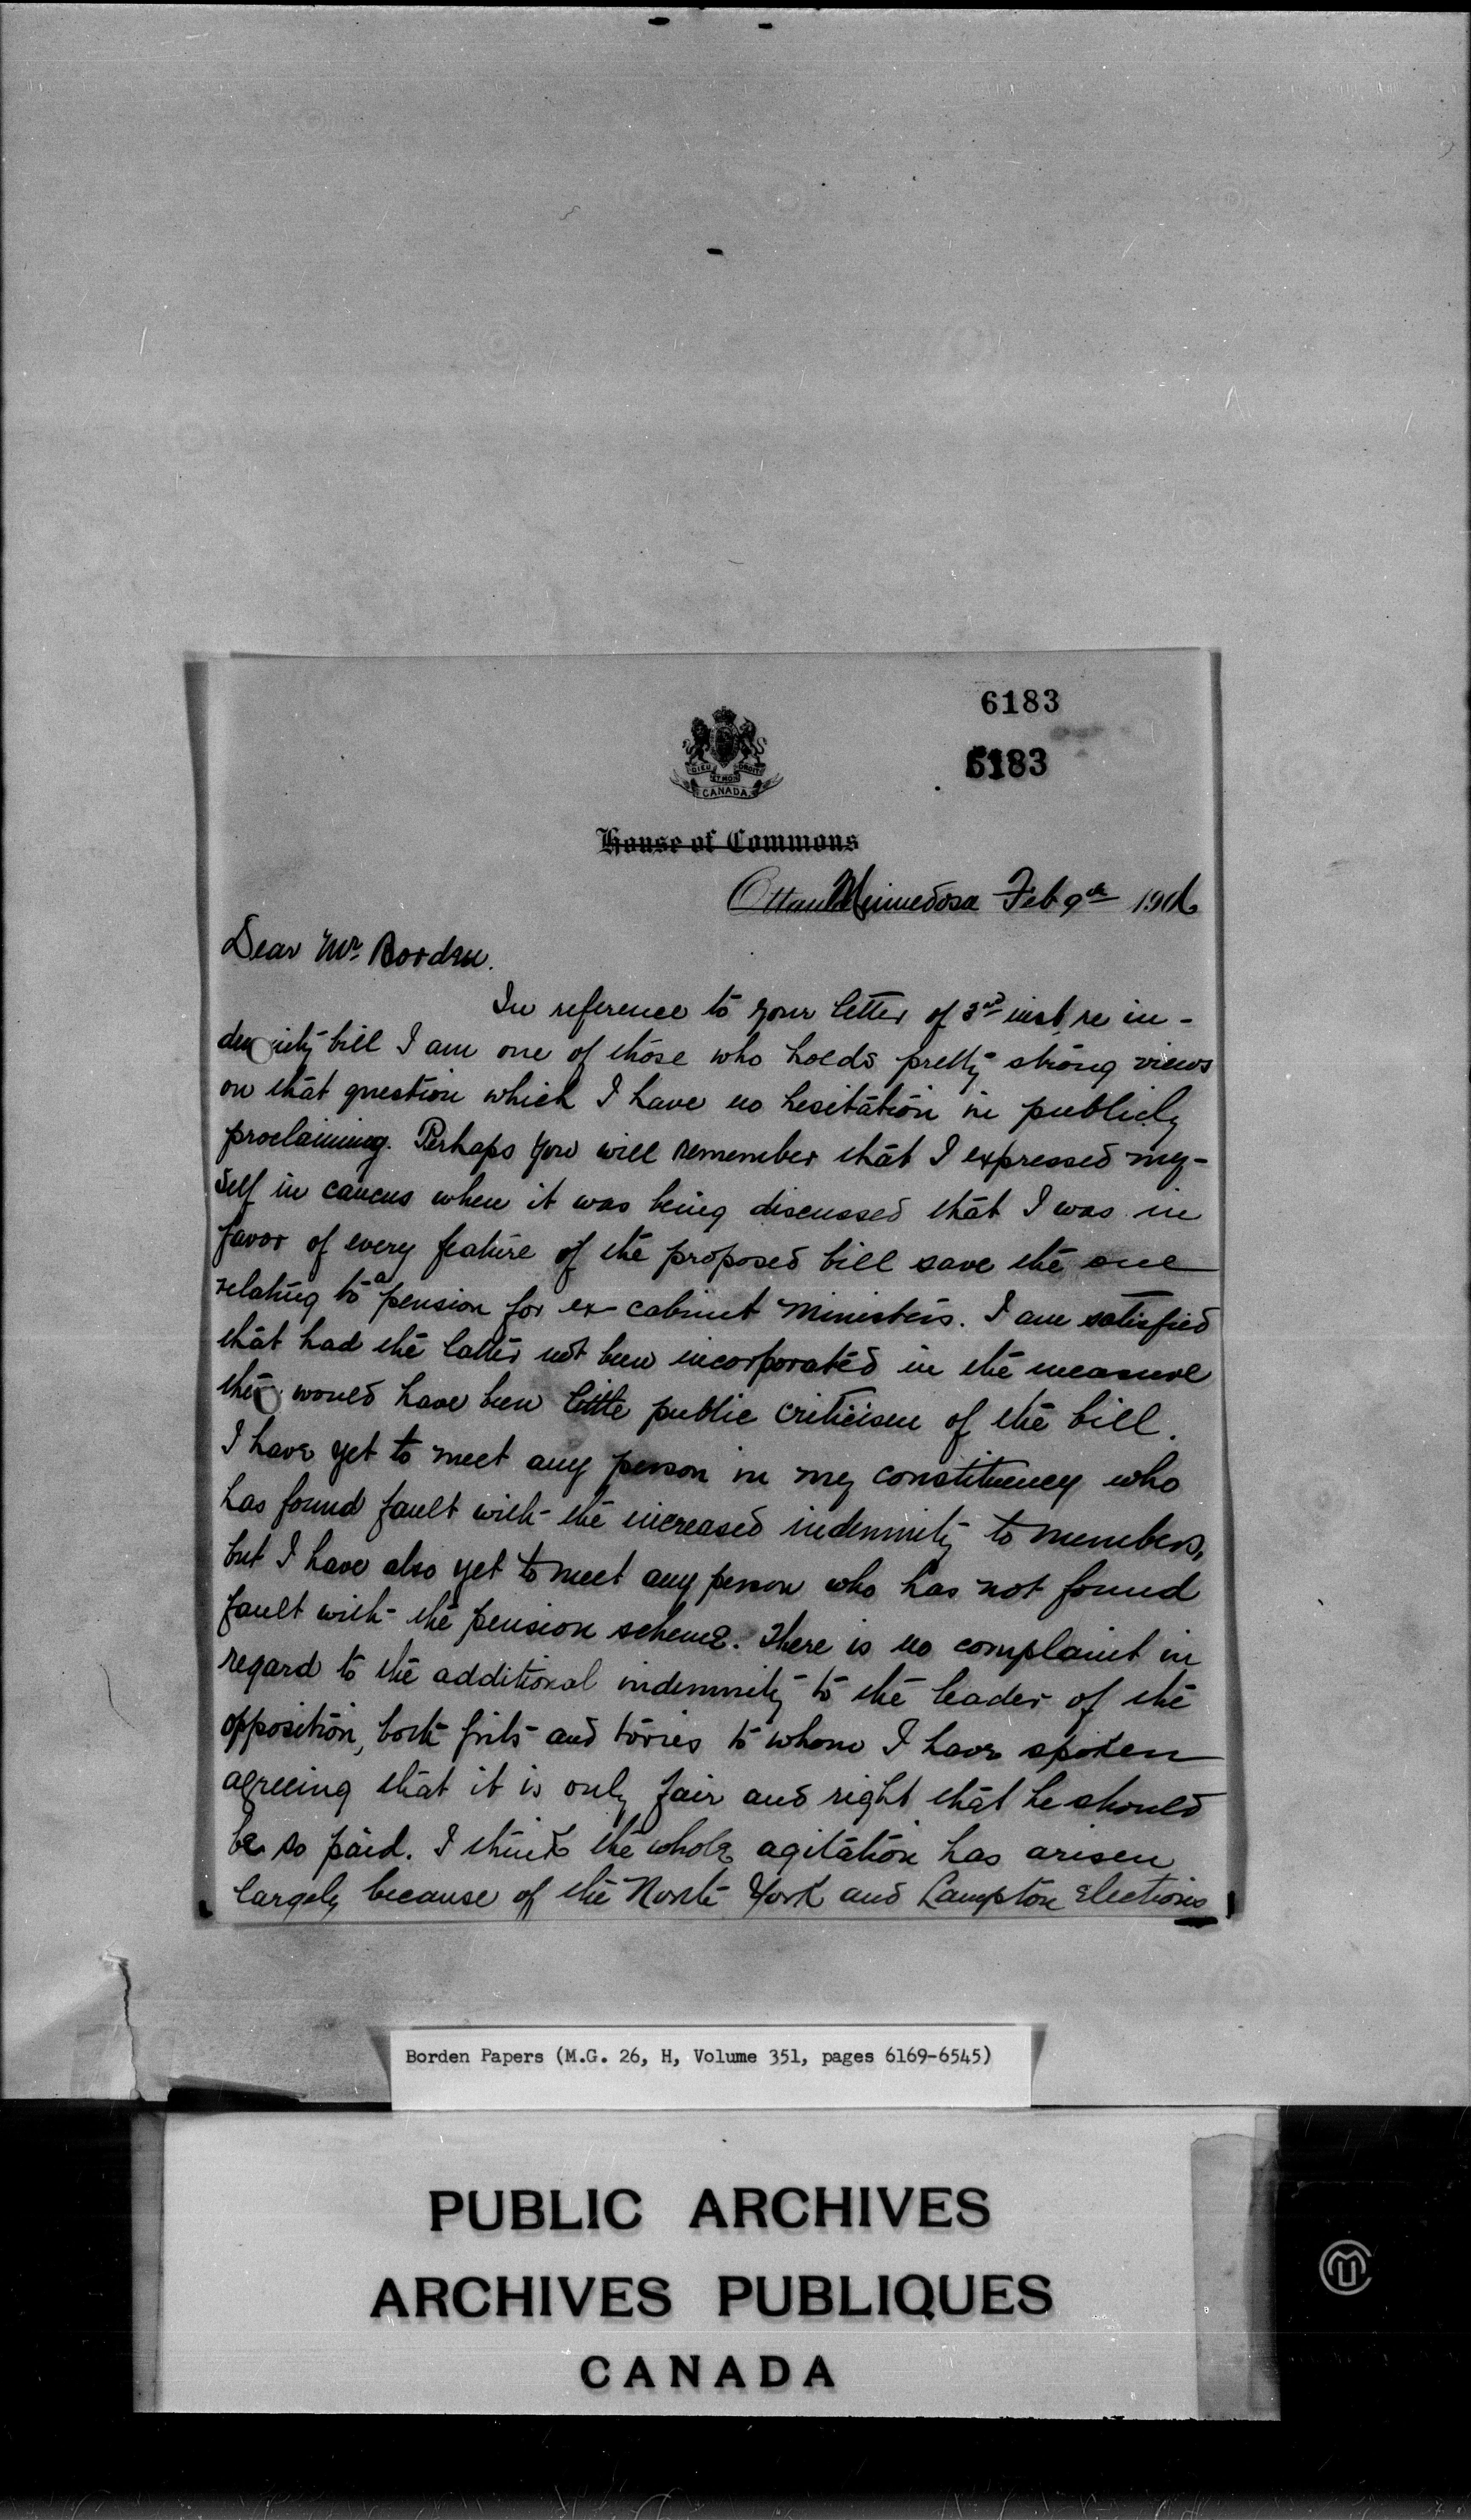 6183
6183
DIEU ET MON DROIT
CANADA
House of Commons
Ottawa Minnedosa Feb 9th 1906
Dear Mr Borden.
In reference to your letter of 3rd inst re in-
demnity bill I am one of those who holds pretty strong views
on that question which I have no hesitation in publicly
proclaiming. Perhaps you will remember that I expressed my-
self in caucus when it was being discussed that I was in
favor of every feature of the proposed bill save the one
relating to a pension for ex-cabinet ministers. I am satisfied
that had the latter not been incorporated in the measure
there would have been little public criticism of the bill.
I have yet to meet any person in my constituency who
has found fault with the increased indemnity to members,
but I have also yet to meet any person who has not found
fault with the pension scheme. There is no complaint in
regard to the additional indemnity to the leader of the
opposition, both grits and tories to whom I have spoken
agreeing that it is only fair and right that he should
be so paid. I think the whole agitation has arisen
largely because of the North York and Lampton elections
Borden Papers (M.G. 26, H, Volume 351, pages 6169-6545)
PUBLIC ARCHIVES
ARCHIVES PUBLIQUES
CANADA